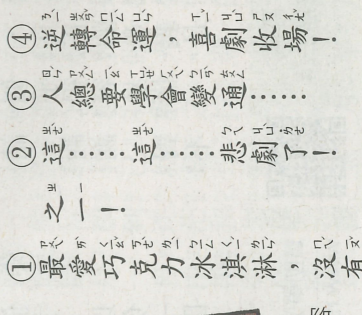 ①最愛巧克力冰淇淋，沒有
之一！
②這……這……悲劇了！
③人總要學會變通……
④逆轉命運，喜劇收場！